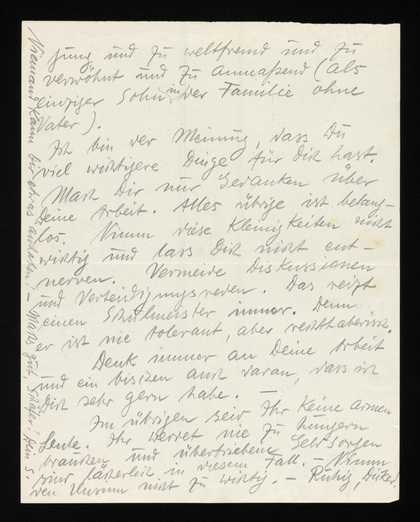 jung und zu weltfremd und zu
verwöhnt und zu anmaßend (als
einziger Sohn in der Familie ohne
Vater).
Ich bin der Meinung, dass Du
viel wichtigere Dinge für Dich hast.
Mach Dir nur Gedanken über
Deine Arbeit. Alles übrige ist belang-
los. Nimm diese Kleinigkeiten nicht
wichtig und lass Dich nicht ent-
nerven. Vermeide Diskussionen
und Verteidigungsreden. Das reizt
einen Schulmeister immer. Denn
er ist nie tolerant, aber rechthaberisch.
Denk immer an Deine Arbeit
und ein bisschen auch daran, dass ich
Dich sehr gern habe. —
Im übrigen seid Ihr keine armen
Leute. Ihr werdet nie zu hungern
brauchen und übertriebene Geldsorgen
sind lächerlich in diesem Fall. — Nimm
den Unsinn nicht zu wichtig. — Ruhig,
Niemand kann Dir etwas anhaben. — Mach's gut,